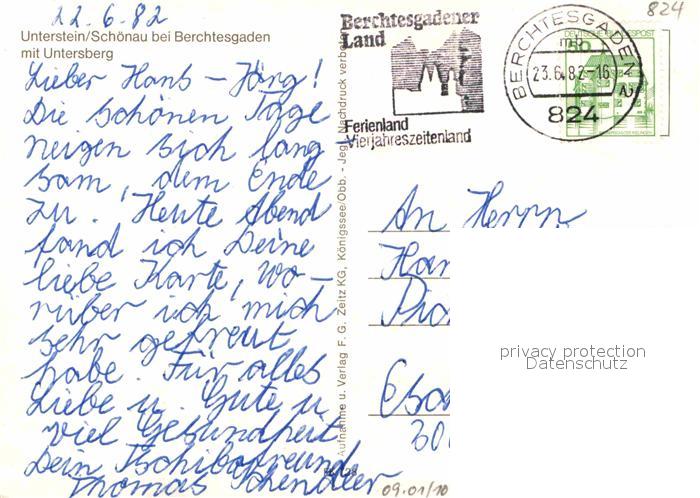 22.6.82
824
Unterstein/Schönau bei Berchtesgaden
mit Untersberg
Lieber Hans-Jörg!
Die schönen Tage
neigen sich lang-
sam, dem Ende
zu. Heute Abend
fand ich Deine
liebe Karte, wo-
rüber ich mich
sehr gefreut
habe. Für alles
Liebe u. Gute u.
viel Gesundheit
Dein Tschibofreund
Thomas
Aufnahme u. Verlag F. G. Zeitz KG., Königssee/Obb. - Jeg. Nachdruck verb
Berchtesgadener
Land
Ferienland
Vierjahreszeitenland
BERCHTESGADEN 2
mb
23.6.82-16
824
DEUTSCHE BUNDESPOST
50
An Herrn
Har
Esa
30
09.01/10
privacy protection
Datenschutz